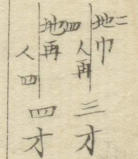 地二
巾
人再
三才
地四
再
人四
四才